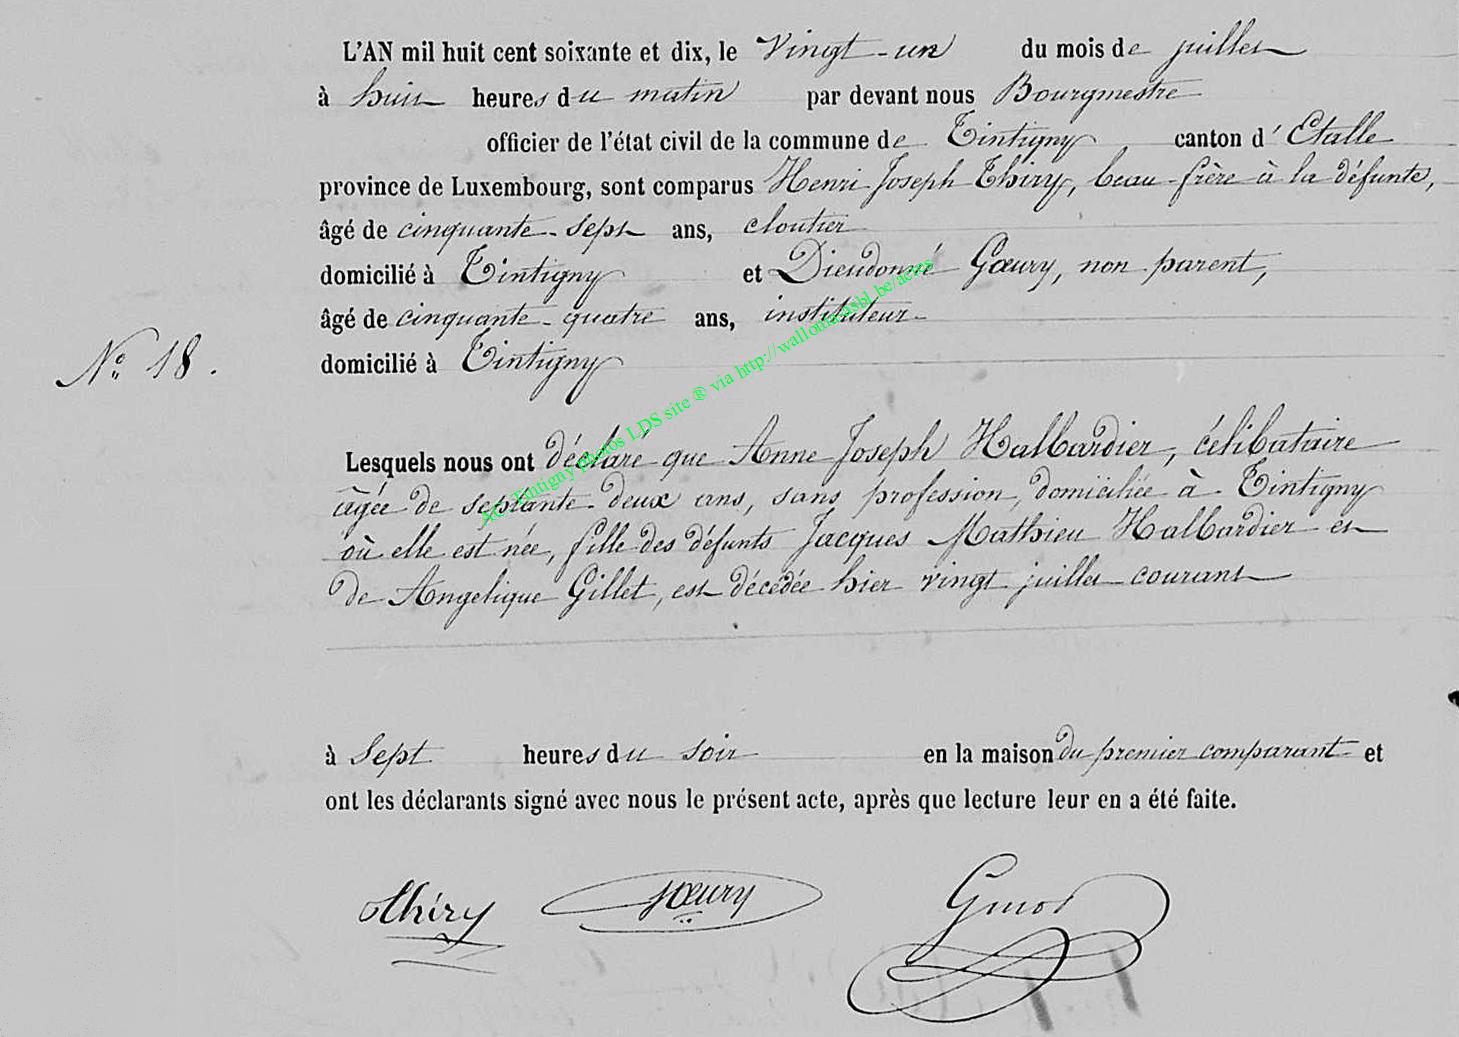 L'AN mil huit cent soixante et dix, le Vingt-un du mois de juillet
à huit heures du matin par devant nous Bourgmestre
officier de l'état civil de la commune de Tintigny canton d'Etalle
province de Luxembourg, sont comparus Henri Joseph Thiry, beau-frère à la défunte,
âgé de cinquante-sept ans, cloutier
domicilié à Tintigny et Dieudonné Gœury, non parent,
âgé de cinquante-quatre ans, instituteur
N° 18.
domicilié à Tintigny
Lesquels nous ont déclaré que Anne Joseph Halbardier, célibataire
âgée de septante deux ans, sans profession, domiciliée à Tintigny
où elle est née, fille des défunts Jacques Mathieu Halbardier et
de Angelique Gillet, est décédée hier vingt juillet courant
à Sept heures du soir en la maison du premier comparant et
ont les déclarants signé avec nous le présent acte, après que lecture leur en a été faite.
Thiry Gœury
AC Tintigny photos LDS site ® via http://wallonia.asbl.be/actes